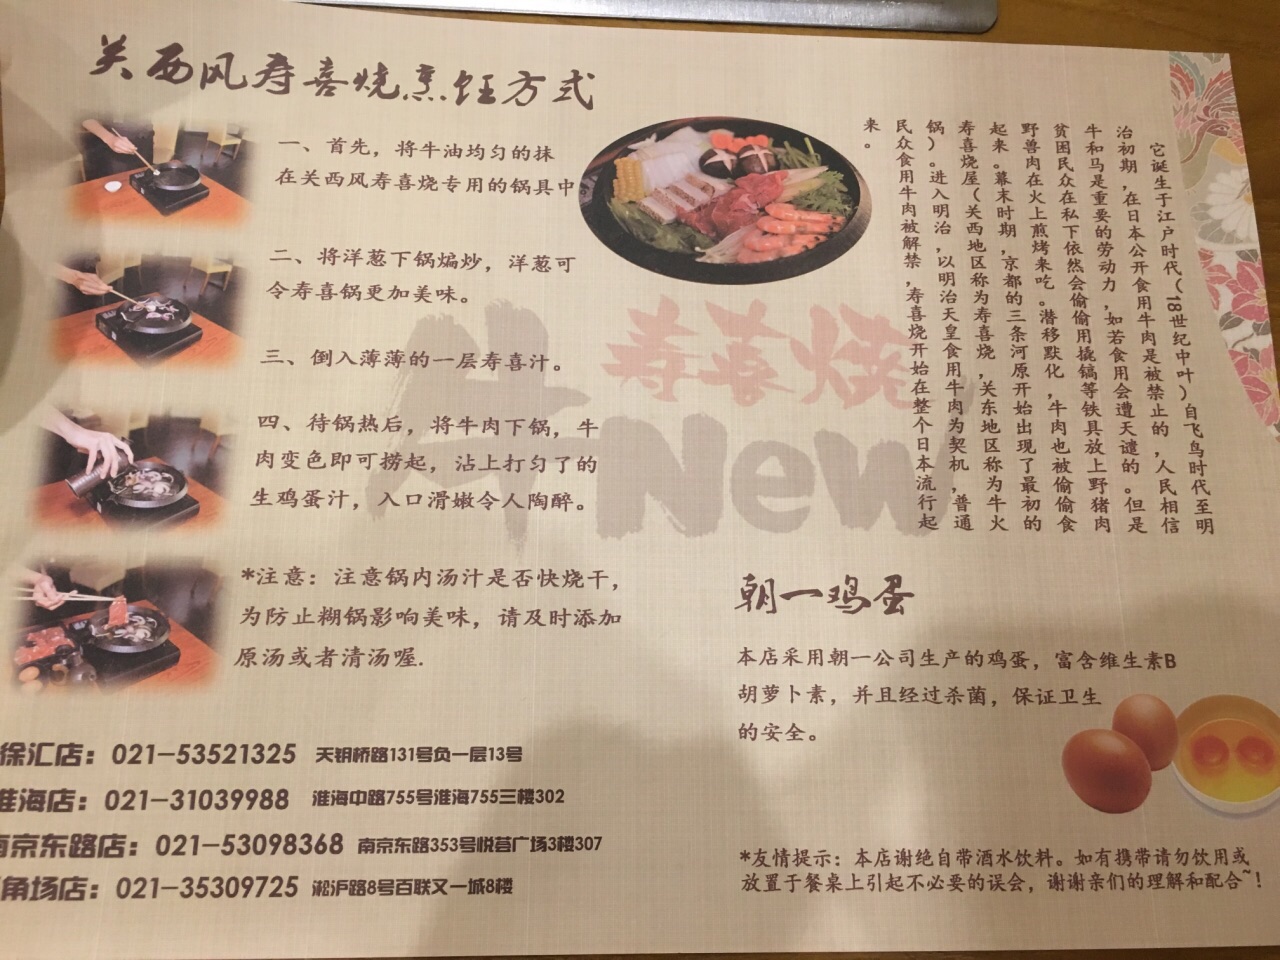 关西风寿喜烧烹饪方式
一、首先，将牛油均匀的抹
在关西风寿喜烧专用的锅具中
二、将洋葱下锅煸炒，洋葱可
令寿喜锅更加美味。
三、倒入薄薄的一层寿喜汁。
四、待锅热后，将牛肉下锅，牛
肉变色即可捞起，沾上打匀了的
生鸡蛋汁，入口滑嫩令人陶醉。
*注意：注意锅内汤汁是否快烧干，
为防止糊锅影响美味，请及时添加
原汤或者清汤喔.
徐汇店：021-53521325 天钥桥路131号负一层13号
淮海店：021-31039988 淮海中路755号淮海755三楼302
南京东路店：021-53098368 南京东路353号悦荟广场3楼307
角场店：021-35309725 淞沪路8号百联又一城8楼
寿喜烧
牛New
它诞生于江户时代（18世纪中叶）自飞鸟时代至明
治初期，在日本公开食用牛肉是被禁止的，人民相信
牛和马是重要的劳动力，如若食用会遭天谴的。但是
贫困民众在私下依然会偷偷用撬镐等铁具放上野猪肉
野兽肉在火上煎烤来吃。潜移默化，牛肉也被偷偷食
起来。幕末时期，京都的三条河原开始出现了最初的
寿喜烧屋（关西地区称为寿喜烧，关东地区称为牛火
锅）。进入明治，以明治天皇食用牛肉为契机，普通
民众食用牛肉被解禁，寿喜烧开始在整个日本流行起
来。
朝一鸡蛋
本店采用朝一公司生产的鸡蛋，富含维生素B
胡萝卜素，并且经过杀菌，保证卫生
的安全。
*友情提示：本店谢绝自带酒水饮料。如有携带请勿饮用或
放置于餐桌上引起不必要的误会，谢谢亲们的理解和配合~！